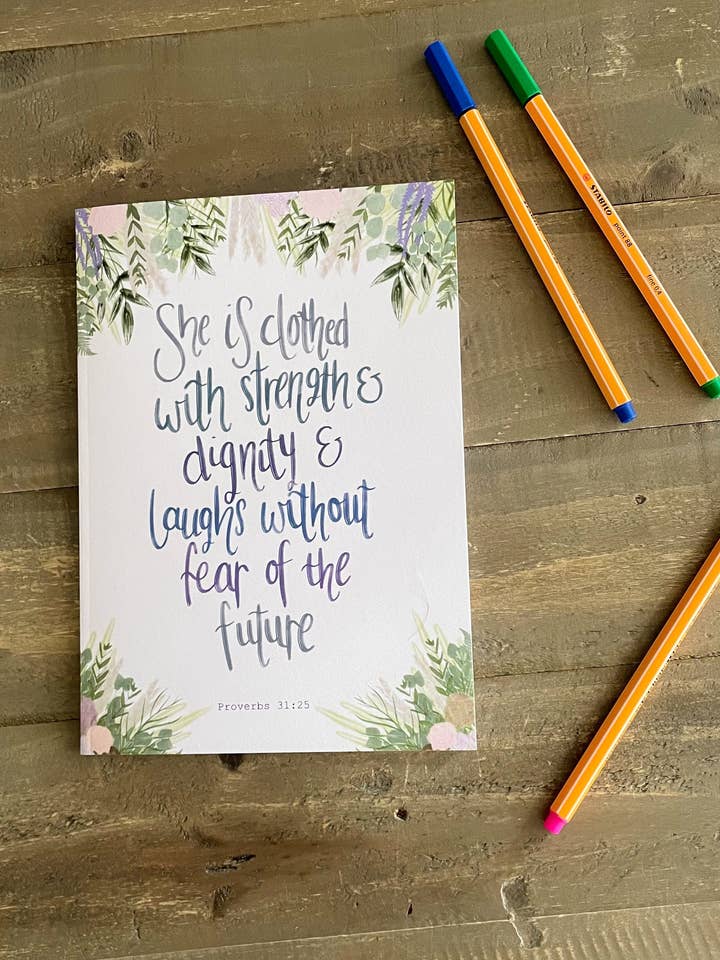 She is clothed
with strength &
dignity &
laughs without
fear of the
future
Proverbs 31:25
STABILO point 88 fine 0.4